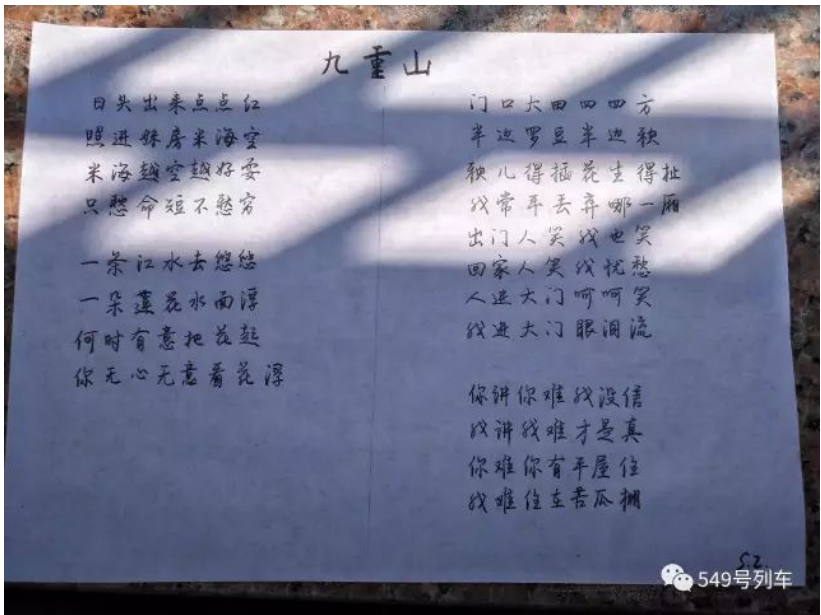 九重山
日头出来点点红
照进妹房米海空
米海越空越好耍
只愁命短不愁穷
一条江水去悠悠
一朵莲花水面浮
何时有意把花起
你无心无意看花浮
门口大田四四方
半边罗豆半边秧
秧儿得插花生得扯
我常年丢弃哪一厢
出门人笑我也笑
回家人笑我忧愁
人进大门呵呵笑
我进大门眼泪流
你讲你难我没信
我讲我难才是真
你难你有平屋住
我难住在苦瓜棚
S.Z.
549号列车